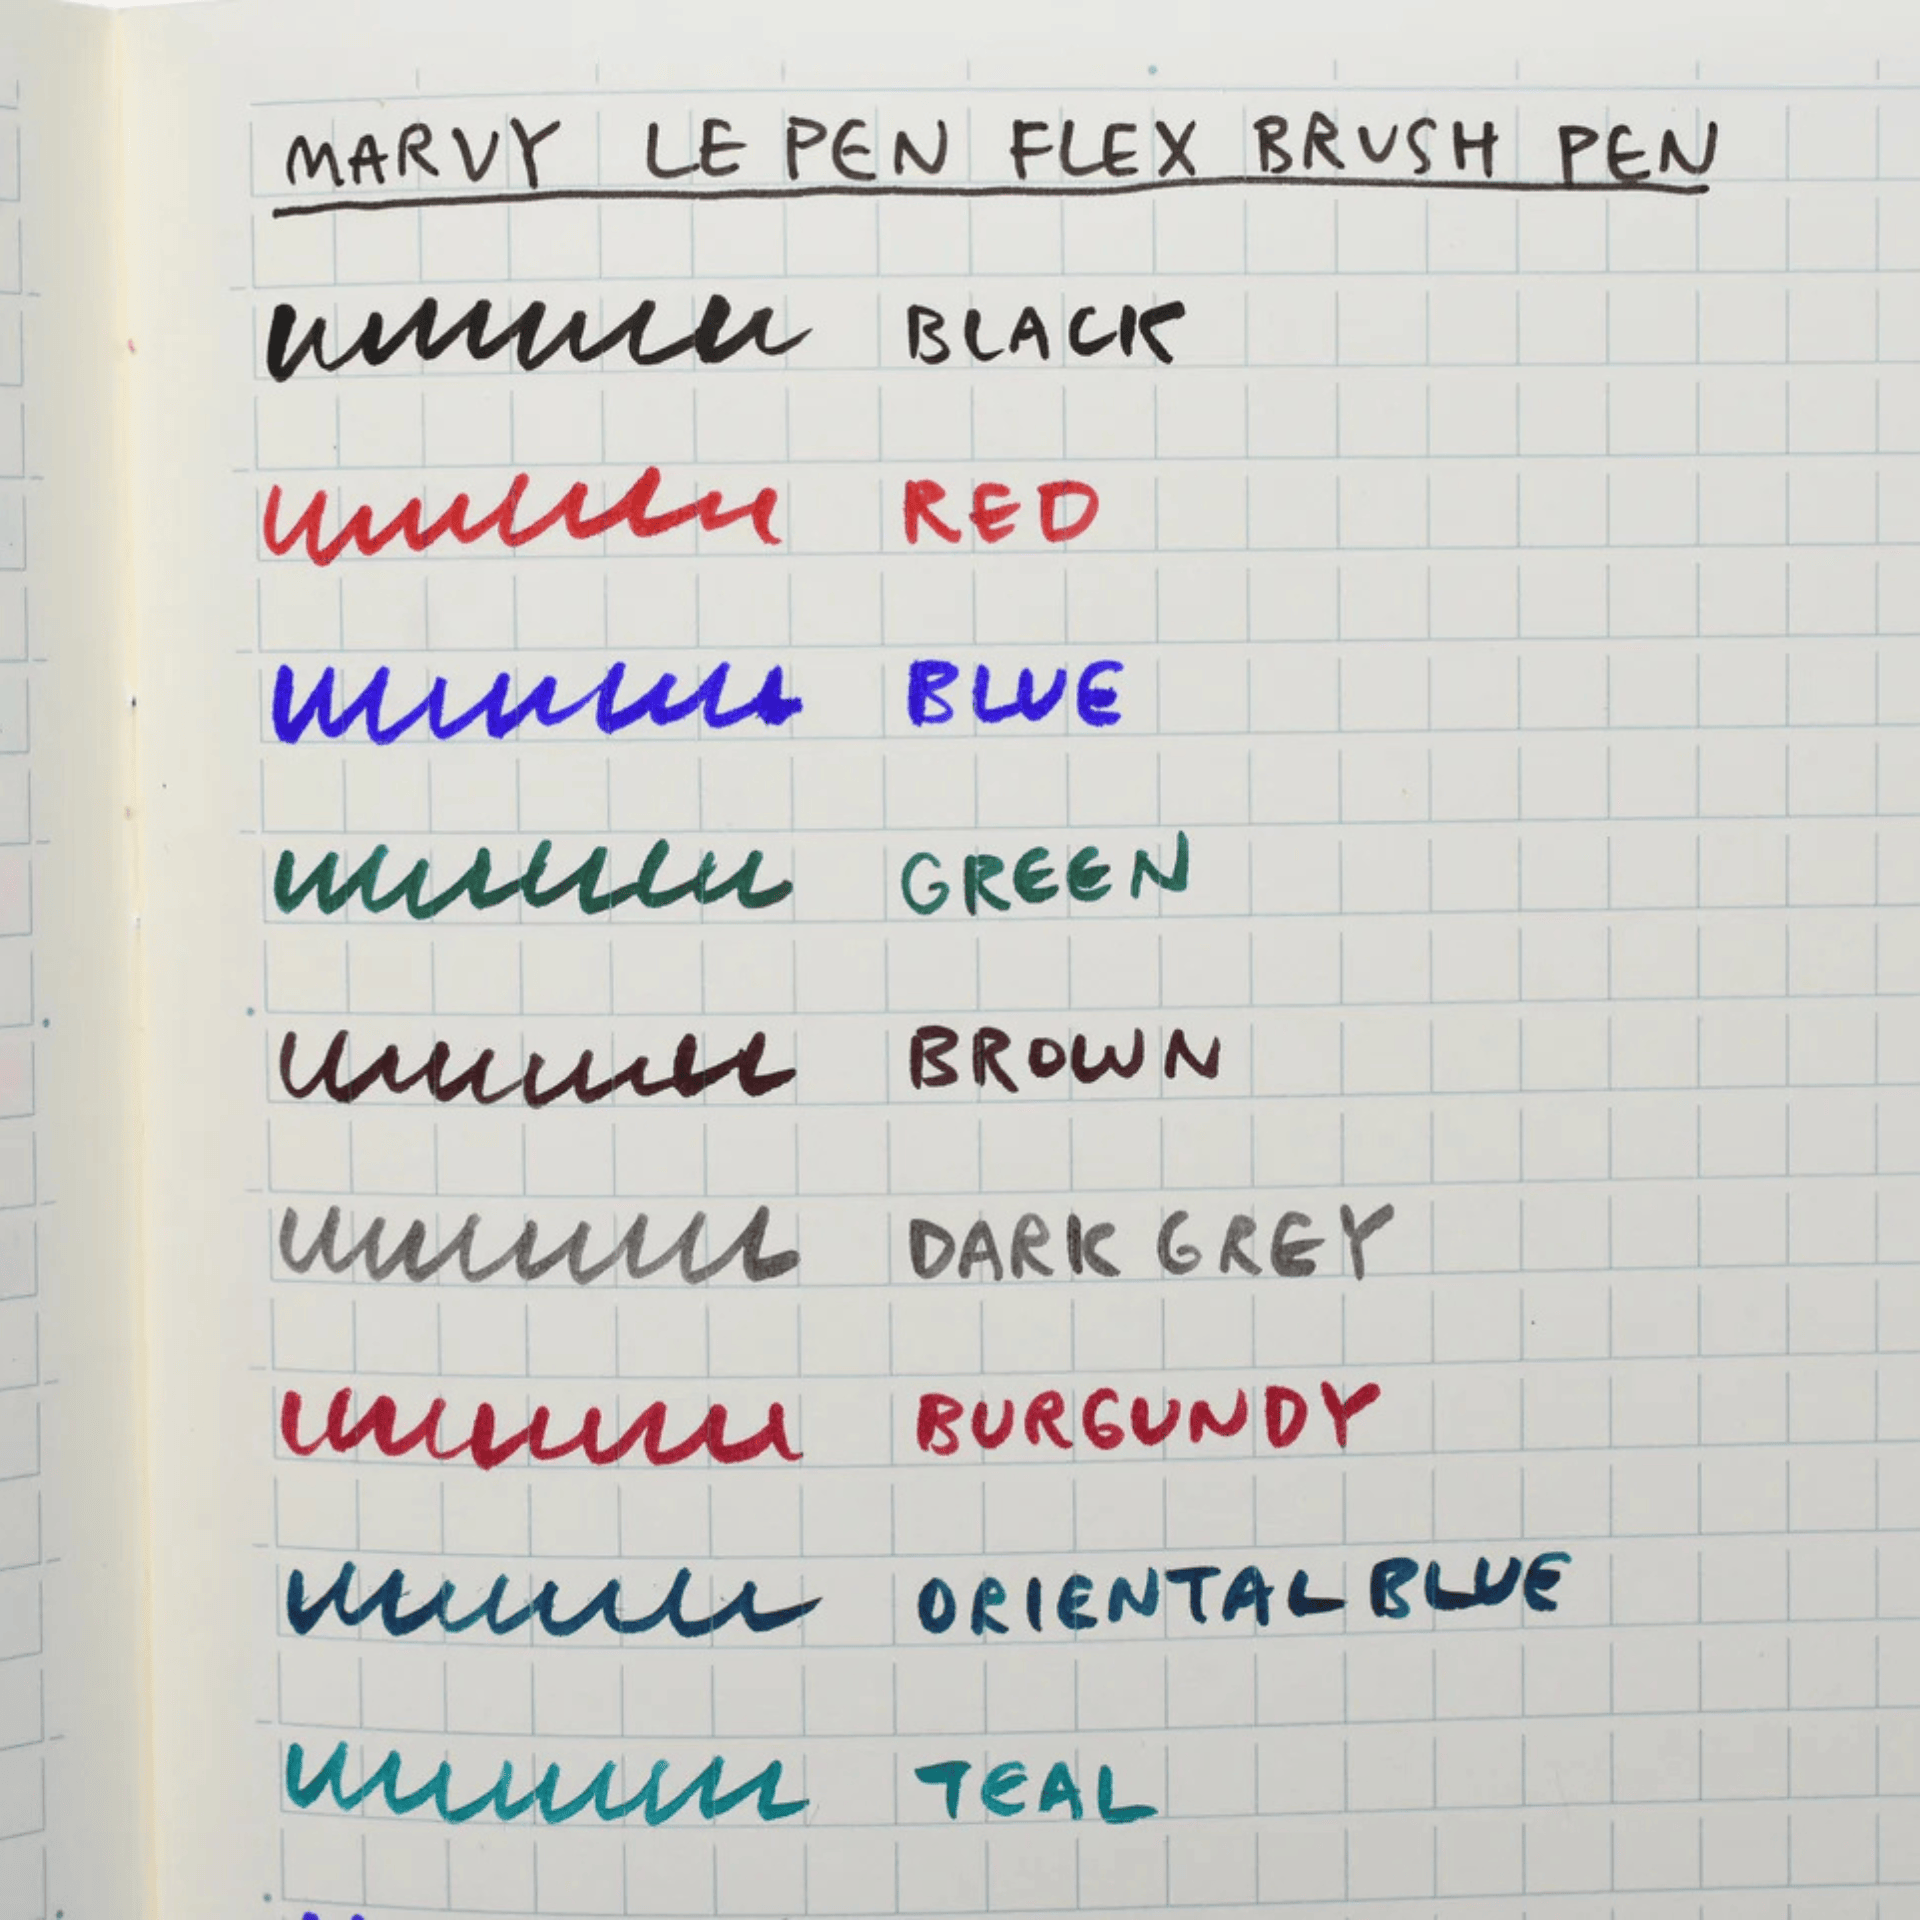 MARVY LE PEN FLEX BRUSH PEN
BLACK
RED
BLUE
GREEN
BROWN
DARK GREY
BURGUNDY
ORIENTAL BLUE
TEAL